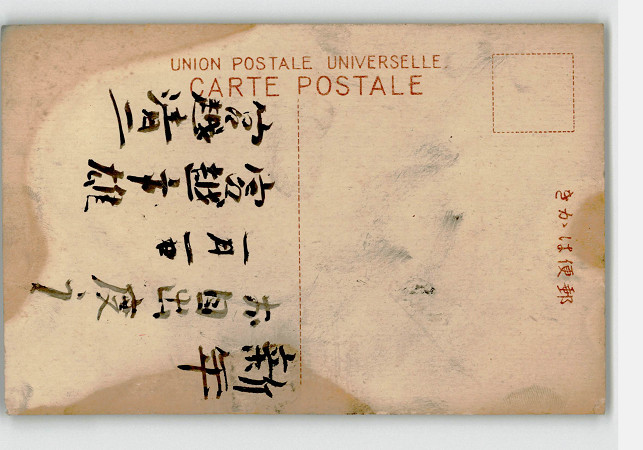 UNION POSTALE UNIVERSELLE
CARTE POSTALE
きかは便郵
新年
お目出度う
一月一日
宮越幸雄
宮越清二